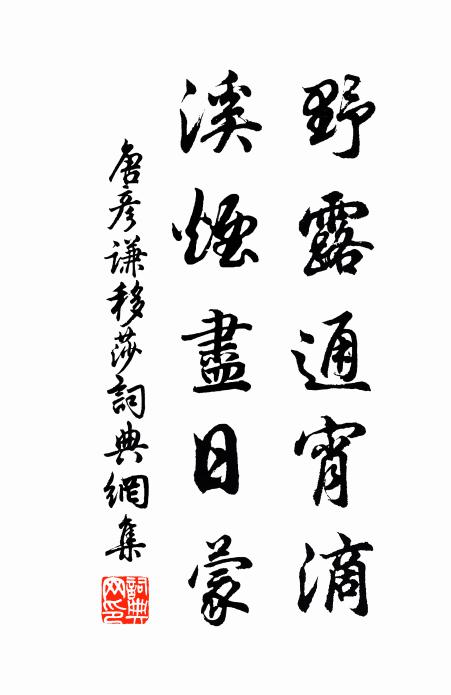 野露通宵滴
溪煙盡日蒙
唐彥謙移莎詞典網集